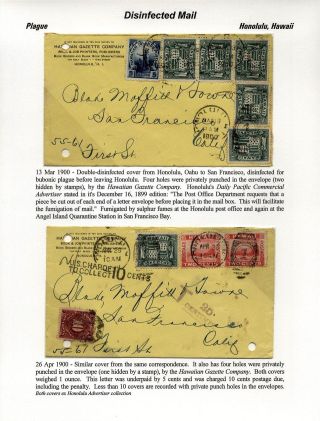 Disinfected Mail
Plague Honolulu, Hawaii
HAWAIIAN GAZETTE COMPANY
HONOLULU, H. I.
Blake, Moffitt & Towne
San Francisco
55-61 First St. Calif
13 Mar 1900 - Double-disinfected cover from Honolulu, Oahu to San Francisco, disinfected for
bubonic plague before leaving Honolulu. Four holes were privately punched in the envelope (two
hidden by stamps), by the Hawaiian Gazette Company. Honolulu's Daily Pacific Commercial
Advertiser stated in it's December 16, 1899 edition: "The Post Office Department requests that a
piece be cut out of each end of a letter envelope before placing it in the mail box. This will facilitate
the fumigation of mail." Fumigated by sulphur fumes at the Honolulu post office and again at the
Angel Island Quarantine Station in San Francisco Bay.
GAZETTE COMPANY
U.S. CHARGE
TO COLLECT 10 CENTS
Blake, Moffitt & Towne
San Francisco
55-61 First St Calif
26 Apr 1900 - Similar cover from the same correspondence. It also has four holes were privately
punched in the envelope (one hidden by a stamp), by the Hawaiian Gazette Company. Both covers
weighed 1 ounce. This letter was underpaid by 5 cents and was charged 10 cents postage due,
including the penalty. Less than 10 covers are recorded with private punch holes in the envelopes.
Both covers ex Honolulu Advertiser collection